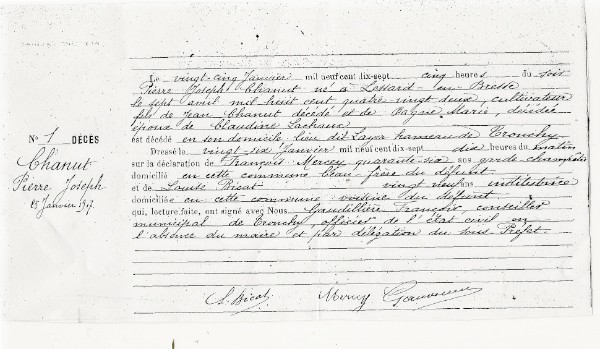 Nº 1 DÉCÈS
Chanut
Pierre Joseph
25 Janvier 1917.
Le vingt-cinq Janvier mil neuf cent dix-sept cinq heures du soir
Pierre Joseph Chanut né à Lessard-en-Bresse
le sept avril mil huit cent quatre vingt deux, cultivateur
fils de Jean Chanut décédé et de Marie, décédée
époux de Claudine
est décédé en son domicile lieu dit hameau de Tronchy
Dressé le vingt-six Janvier mil neuf cent dix-sept dix heures du matin
sur la déclaration de François Mercey quarante-six ans garde-champêtre
domicilié en cette commune beau-frère du défunt
et de Louise Bicat vingt neuf ans
domiciliée en cette commune voisine du défunt
qui, lecture faite, ont signé avec Nous Gaudillière François conseiller
municipal de Tronchy, officier de l'État civil en
l'absence du maire et par délégation du sous-Préfet.
L. Bicat Mercey